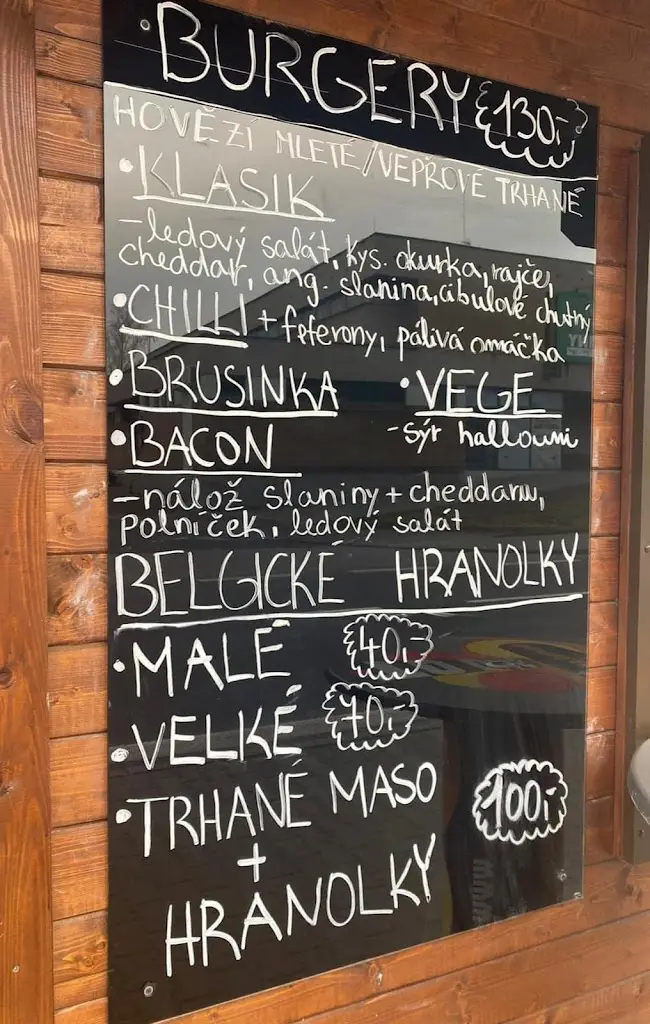 • BURGERY 130,-
HOVĚZÍ MLETÉ/VEPŘOVÉ TRHANÉ
• KLASIK
- ledový salát, kys. okurka, rajče,
cheddar, ang. slanina, cibulové chutný
• CHILLI + feferony, pálivá omáčka
• BRUSINKA • VEGE
• BACON - sýr halloumi
- nálož slaniny + cheddaru,
polníček, ledový salát
BELGICKÉ HRANOLKY
• MALÉ 40,-
• VELKÉ 70,-
• TRHANÉ MASO 100,-
+
HRANOLKY